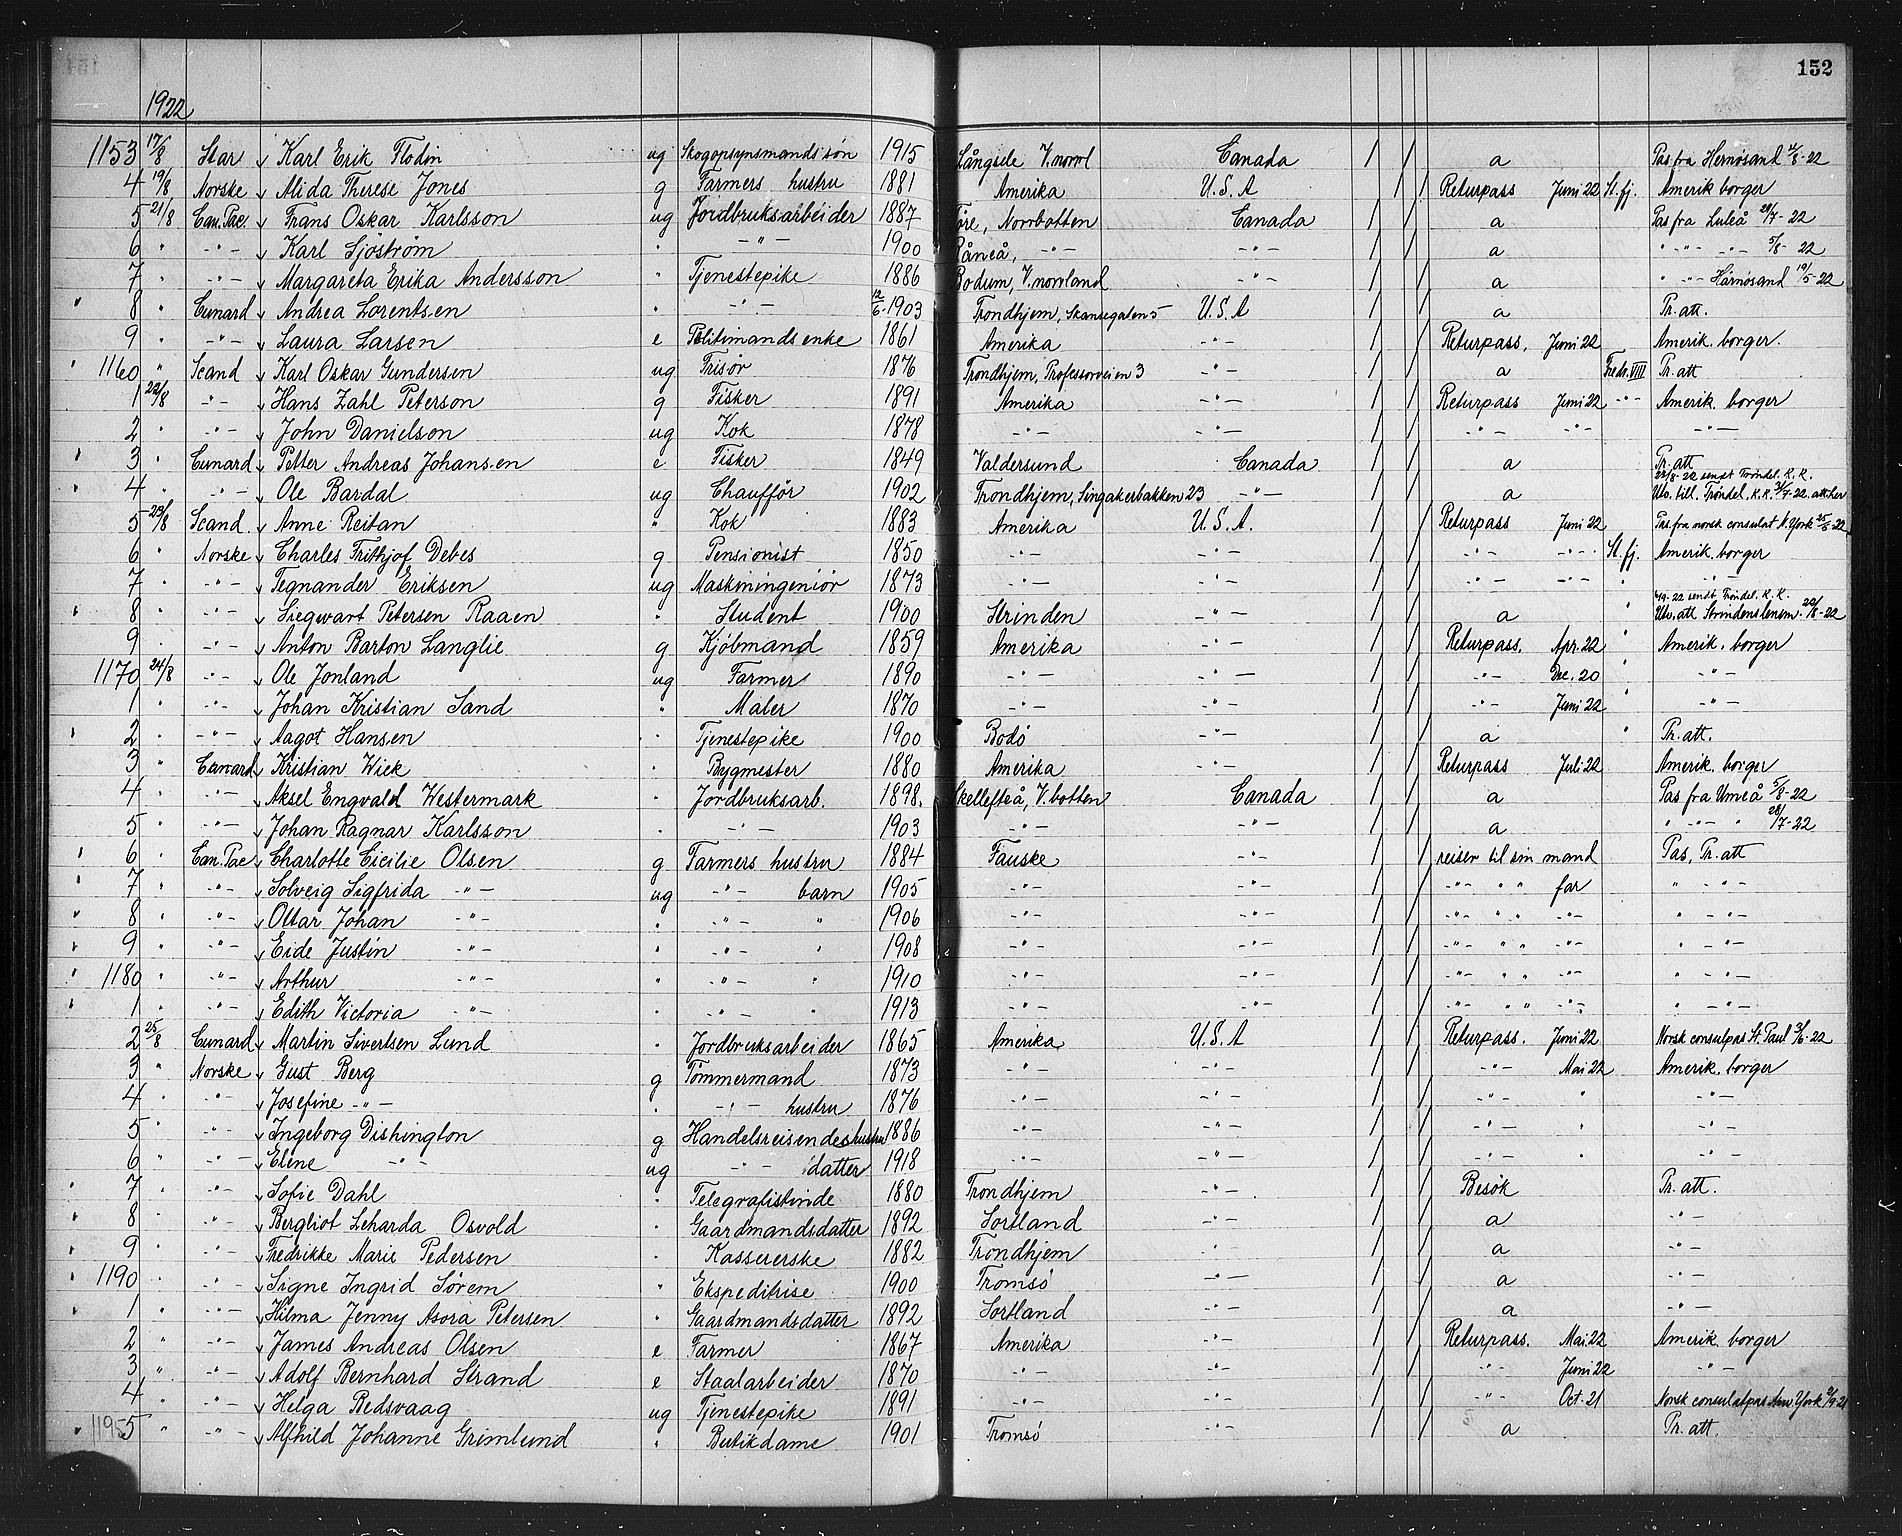 152
1922
1153 17/8 Star Karl Erik Flodin ug Skogopsynsmands søn 1915 Långsele V. norrl Canada / / a Pas fra Hernösand 2/8-22
4 19/8 Norske Alida Therese Jones g Farmers hustru 1881 Amerika U.S.A / / Returpass Juni 22 St. fj. Amerik borger
5 21/8 Can. Pac. Frans Oskar Karlsson ug Jordbruksarbeider 1887 Töre, Norrbotten Canada / / a Pas fra Luleå 28/7-22
6 " -"- Karl Sjöström " -"- 1900 Råneå, -"- -"- / / a " -"- " 5/8-22
7 " -"- Margareta Erika Andersson " Tjenestepike 1886 Bodum, V. norrland -"- / / a " -"- Härnösand 19/5-22
8 " Cunard Andrea Lorentsen " -"- 12/6-1903 Trondhjem, Skansegaten 5 U.S.A / / a Pr. att.
9 " -"- Laura Larsen e Politimands enke 1861 Amerika -"- / / Returpass. Juni 22 Amerik. borger.
1160 " Scand Karl Oskar Gundersen ug Frisør 1876 Trondhjem, Professorveien 3 -"- / / a Fredr. VIII Pr. att
1 22/8 -"- Hans Zahl Peterson g Fisker 1891 Amerika -"- / / Returpass Juni 22 -"- Amerik. borger
2 " -"- John Danielson ug Kok 1878 -"- -"- / / -"- -"- -"-
3 " Cunard Petter Andreas Johansen e Fisker 1849 Valdersund Canada / / a Pr. att
4 " -"- Ole Bardal ug Chauffför 1902 Trondhjem, Singsakerbakken 23 -"- / / a 22/8-22 sendt Trøndel. K.K. Utv. till. Trøndel. K.K. 3/7-22. att. her
5 23/8 Scand. Anne Reitan " Kok 1883 Amerika U.S.A. / / Returpass Juni 22 Pas fra norsk consulat N. York 25/5-22
6 " Norske Charles Frithjof Debes g Pensionist 1850 -"- -"- / / -"- -"- St. fj. Amerik. borger
7 " -"- Tegnander Eriksen ug Maskiningeniør 1873 -"- -"- / / -"- -"- " -"-
8 " -"- Siegwart Petersen Raaen " Student 1900 Strinden -"- / / a " 4/9-22 sendt Trøndel. K.K. Utv. att Strindens lensm. 20/8-22
9 " -"- Anton Barton Langlie g Kjøbmand 1859 Amerika -"- / / Returpass. Apr. 22 " Amerik. borger
1170 24/8 -"- Ole Jonland ug Farmer 1890 -"- -"- / / -"- Dec. 20 " -"-
1 " -"- Johan Kristian Sand " Maler 1870 -"- -"- / / -"- Juni 22 " -"-
2 " -"- Aagot Hansen " Tjenestepike 1900 Bodø -"- / / a " Pr. att.
3 " Cunard Kristian Wick " Bygmester 1880 Amerika -"- / / Returpass Juli 22 Amerik. borger
4 " -"- Aksel Engvald Westermark " Jordbruksarb. 1898. Skellefteå, V. botten Canada / / a Pas fra Umeå 5/8-22
5 " -"- Johan Ragnar Karlsson " -"- 1903 -"- -"- / / a " -"- " 28/7-22
6 " Can. Pac Charlotte Cicilie Olsen g Farmers hustru 1884 Fauske -"- / / reiser til sin mand Pas, Pr. att
7 " -"- Solveig Sigfrida -"- ug -"- barn 1905 -"- -"- / / -"- " " far " -"-
8 " -"- Ottar Johan -"- " -"- " 1906 -"- -"- / / -"- " " -"- " -"-
9 " -"- Eide Justin -"- " -"- " 1908 -"- -"- / / -"- " " -"- " -"-
1180 " -"- Arthur -"- " -"- " 1910 -"- -"- / / -"- " " -"- " -"-
1 " -"- Edith Victoria -"- " -"- " 1913 -"- -"- / / -"- " " -"- " -"-
2 25/8 Cunard Martin Sivertsen Lund " Jordbruksarbeider 1865 Amerika U.S.A / / Returpass. Juni 22 Norsk consulpas St. Paul 3/6-22
3 " Norske Gust Berg g Tømmermand 1873 -"- -"- / / -"- Mai 22 Amerik. borger
4 " -"- Josefine -"- " -"- hustru 1876 -"- -"- / / -"- " -"-
5 " -"- Ingeborg Dishington g Handelsreisendes hustru 1886 -"- -"- / / -"- " -"-
6 " -"- Elene -"- ug -"- datter 1918 -"- -"- / / -"- " -"-
7 " -"- Sofie Dahl " Telegrafistinde 1880 Trondhjem -"- / / Besök Pr. att.
8 " -"- Bergliot Leharda Osvold " Gaardmandsdatter 1892 Sortland -"- / / a -"-
9 " -"- Fredrikke Marie Pedersen " Kassererske 1882 Trondhjem -"- / / a -"-
1190 " -"- Signe Ingrid Sørem " Ekspeditrise 1900 Tromsø -"- / / a -"-
1 " -"- Hilma Jenny Asora Petersen " Gaardmandsdatter 1892 Sortland -"- / / a -"-
2 " -"- James Andreas Olsen e Farmer 1867 Amerika -"- / / Returpass. Mai 22 Amerik. borger
3 " -"- Adolf Bernhard Strand e Staalarbeider 1870 -"- -"- / / -"- Juni 22 -"-
4 " -"- Helga Bedsvaag ug Tjenestepike 1891 -"- -"- / / -"- Oct. 21 Norsk consulatpas New York
1195 5 " -"- Alfhild Johanne Grimlund " Butikdame 1901 Tromsø -"- / / a Pr. att.